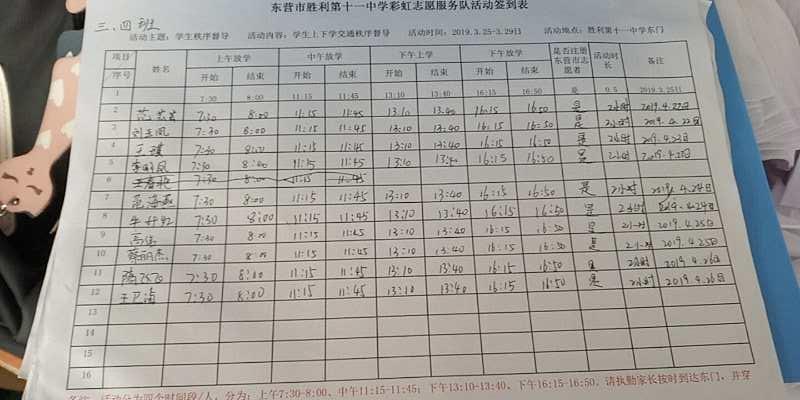 东营市胜利第十一中学彩虹志愿服务队活动签到表
三、四班
活动主题：学生秩序督导 活动内容：学生上下学交通秩序督导 活动时间：2019.3.25-3.29日 活动地点：胜利第十一中学东门
项目/序号 姓名 上午放学 中午放学 下午上学 下午放学 是否注册东营市志愿者 活动时长 备注
开始 结束 开始 结束 开始 结束 开始 结束
1 7:30 8:00 11:15 11:45 13:10 13:40 16:15 16:50 是 0.5 2019.3.25日
2 7:30 8:00 11:15 11:45 13:10 13:40 16:15 16:50 是 2小时 2019.4.22日
3 7:30 8:00 11:15 11:45 13:10 13:40 16:15 16:50 是 2小时 2019.4.22日
4 王琪 7:30 8:00 11:15 11:45 13:10 13:40 16:15 16:50 是 2小时 2019.4.23日
5 7:30 8:00 11:15 11:45 13:10 13:40 16:15 16:50 是 2小时
6 7:30 8:00 11:15 11:45
7 范海燕 7:30 8:00 11:15 11:45 13:10 13:40 16:15 16:50 是 2小时 2019.4.24日
8 7:30 8:00 11:15 11:45 13:10 13:40 16:15 16:50 是 2小时 2019.4.24日
9 7:30 8:00 11:15 11:45 13:10 13:40 16:15 16:50 是 2小时 2019.4.25日
10 薛丽杰 7:30 8:00 11:15 11:45 13:10 13:40 16:15 16:50 是 2小时 2019.4.25日
11 7:30 8:00 11:15 11:45 13:10 13:40 16:15 16:50 是 2小时 2019.4.26日
12 7:30 8:00 11:15 11:45 13:10 13:40 16:15 16:50 是 2小时 2019.4.26日
13
14
15
16
备注：活动分为四个时间段/人，分为：上午7:30-8:00、中午11:15-11:45；下午13:10-13:40、下午16:15-16:50。请执勤家长按时到达东门，并穿